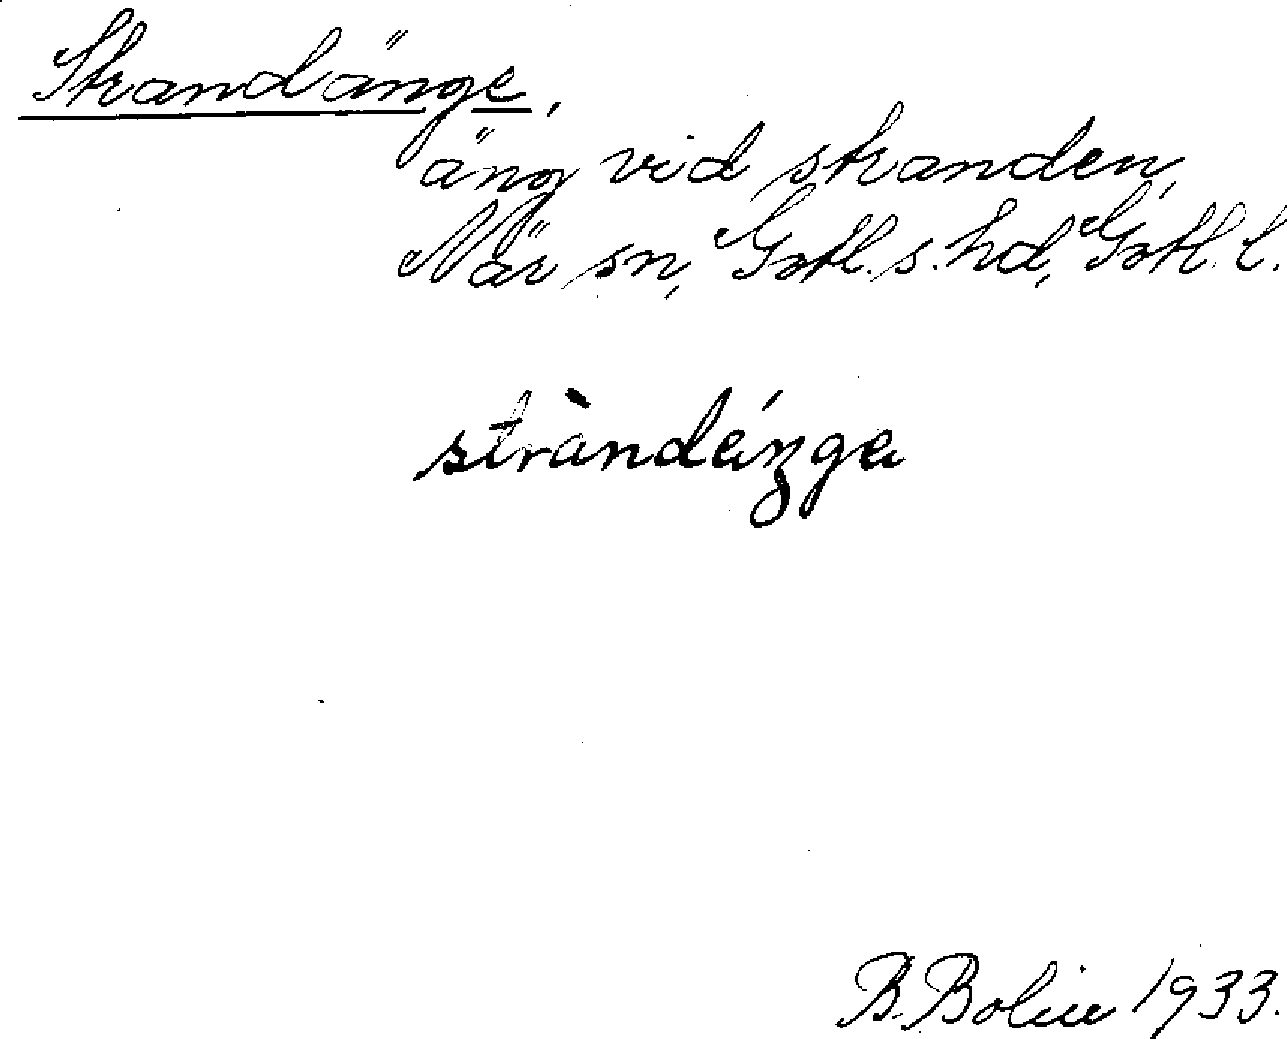 Strandänge,
äng vid stranden,
När sn, Gotl. s. hd, Gotl. l.
stràndéŋge
B. Bolin 1933.